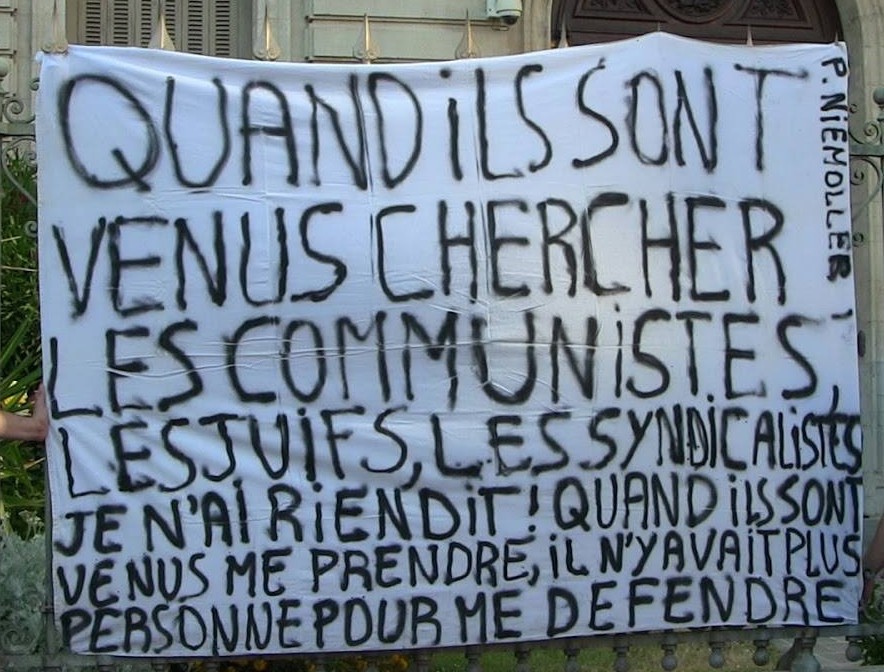 QUAND iLS SONT
VENUS CHERCHER
LES COMMUNiSTES,
LES JUiFS, LES SYNDiCALiSTES
JE N'Ai RiEN DiT! QUAND iLS SONT
VENUS ME PRENDRE, iL N'Y AVAiT PLUS
PERSONNE POUR ME DEFENDRE
P. NiEMOLLER